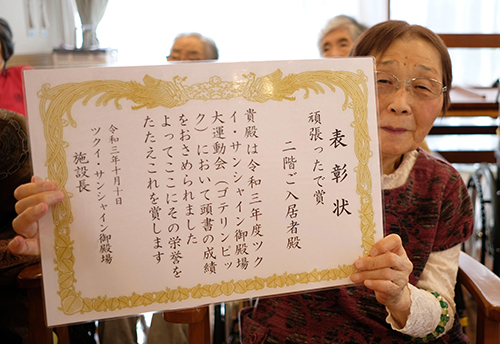 表彰状
頑張ったで賞
二階ご入居者殿
貴殿は令和三年度ツク
イ・サンシャイン御殿場
大運動会（ゴテリンピッ
ク）において頭書の成績
をおさめられました
よってここにその栄誉を
たたえこれを賞します
令和三年十月十日
ツクイ・サンシャイン御殿場
施設長